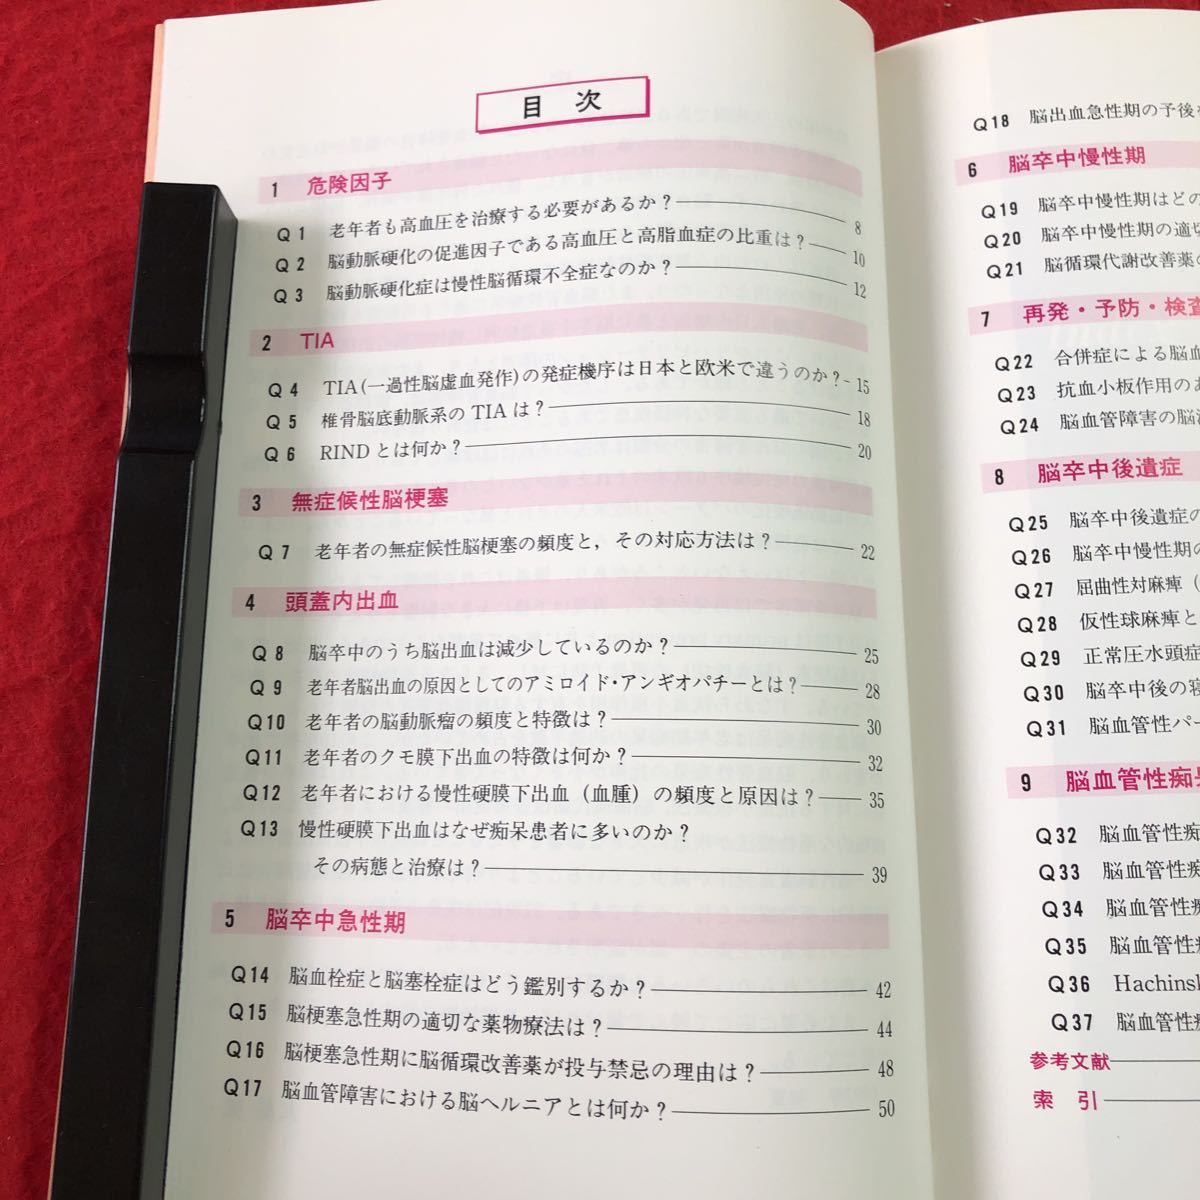 目 次
1 危険因子
Q 1 老年者も高血圧を治療する必要があるか？ 8
Q 2 脳動脈硬化の促進因子である高血圧と高脂血症の比重は？ 10
Q 3 脳動脈硬化症は慢性脳循環不全症なのか？ 12
2 TIA
Q 4 TIA(一過性脳虚血発作)の発症機序は日本と欧米で違うのか？ 15
Q 5 椎骨脳底動脈系のTIAは？ 18
Q 6 RINDとは何か？ 20
3 無症候性脳梗塞
Q 7 老年者の無症候性脳梗塞の頻度と，その対応方法は？ 22
4 頭蓋内出血
Q 8 脳卒中のうち脳出血は減少しているのか？ 25
Q 9 老年者脳出血の原因としてのアミロイド・アンギオパチーとは？ 28
Q10 老年者の脳動脈瘤の頻度と特徴は？ 30
Q11 老年者のクモ膜下出血の特徴は何か？ 32
Q12 老年者における慢性硬膜下出血（血腫）の頻度と原因は？ 35
Q13 慢性硬膜下出血はなぜ痴呆患者に多いのか？
その病態と治療は？ 39
5 脳卒中急性期
Q14 脳血栓症と脳塞栓症はどう鑑別するか？ 42
Q15 脳梗塞急性期の適切な薬物療法は？ 44
Q16 脳梗塞急性期に脳循環改善薬が投与禁忌の理由は？ 48
Q17 脳血管障害における脳ヘルニアとは何か？ 50
Q18 脳出血急性期の予後
6 脳卒中慢性期
Q19 脳卒中慢性期はどの
Q20 脳卒中慢性期の適切
Q21 脳循環代謝改善薬の
7 再発・予防・検査
Q22 合併症による脳血
Q23 抗血小板作用のあ
Q24 脳血管障害の脳
8 脳卒中後遺症
Q25 脳卒中後遺症の
Q26 脳卒中慢性期の
Q27 屈曲性対麻痺（
Q28 仮性球麻痺と
Q29 正常圧水頭症
Q30 脳卒中後の寝
Q31 脳血管性パー
9 脳血管性痴呆
Q32 脳血管性痴
Q33 脳血管性痴
Q34 脳血管性痴
Q35 脳血管性痴
Q36 Hachinsk
Q37 脳血管性痴
参考文献
索 引